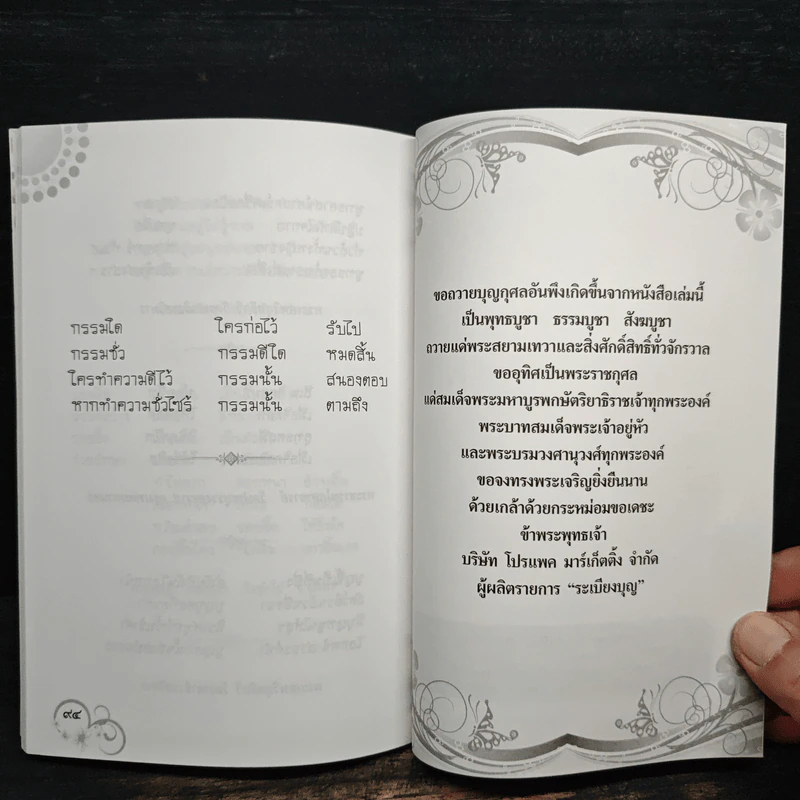 กรรมใด ใครก่อไว้ รับไป
กรรมชั่ว กรรมดีใด หมดสิ้น
ใครทำความดีไว้ กรรมนั้น สนองตอบ
หากทำความชั่วไซร้ กรรมนั้น ตามถึง
๙๔
ขอถวายบุญกุศลอันพึงเกิดขึ้นจากหนังสือเล่มนี้
เป็นพุทธบูชา ธรรมบูชา สังฆบูชา
ถวายแด่พระสยามเทวาและสิ่งศักดิ์สิทธิ์ทั่วจักรวาล
ขออุทิศเป็นพระราชกุศล
แด่สมเด็จพระมหาบูรพกษัตริยาธิราชเจ้าทุกพระองค์
พระบาทสมเด็จพระเจ้าอยู่หัว
และพระบรมวงศานุวงศ์ทุกพระองค์
ขอจงทรงพระเจริญยิ่งยืนนาน
ด้วยเกล้าด้วยกระหม่อมขอเดชะ
ข้าพระพุทธเจ้า
บริษัท โปรแพค มาร์เก็ตติ้ง จำกัด
ผู้ผลิตรายการ “ระเบียงบุญ”